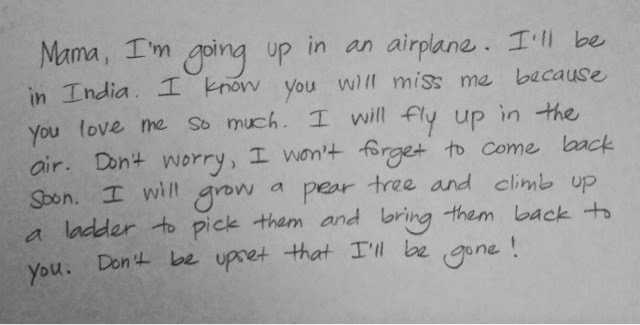 Mama, I'm going up in an airplane. I'll be
in India. I know you will miss me because
you love me so much. I will fly up in the
air. Don't worry, I won't forget to come back
soon. I will grow a pear tree and climb up
a ladder to pick them and bring them back to
you. Don't be upset that I'll be gone!